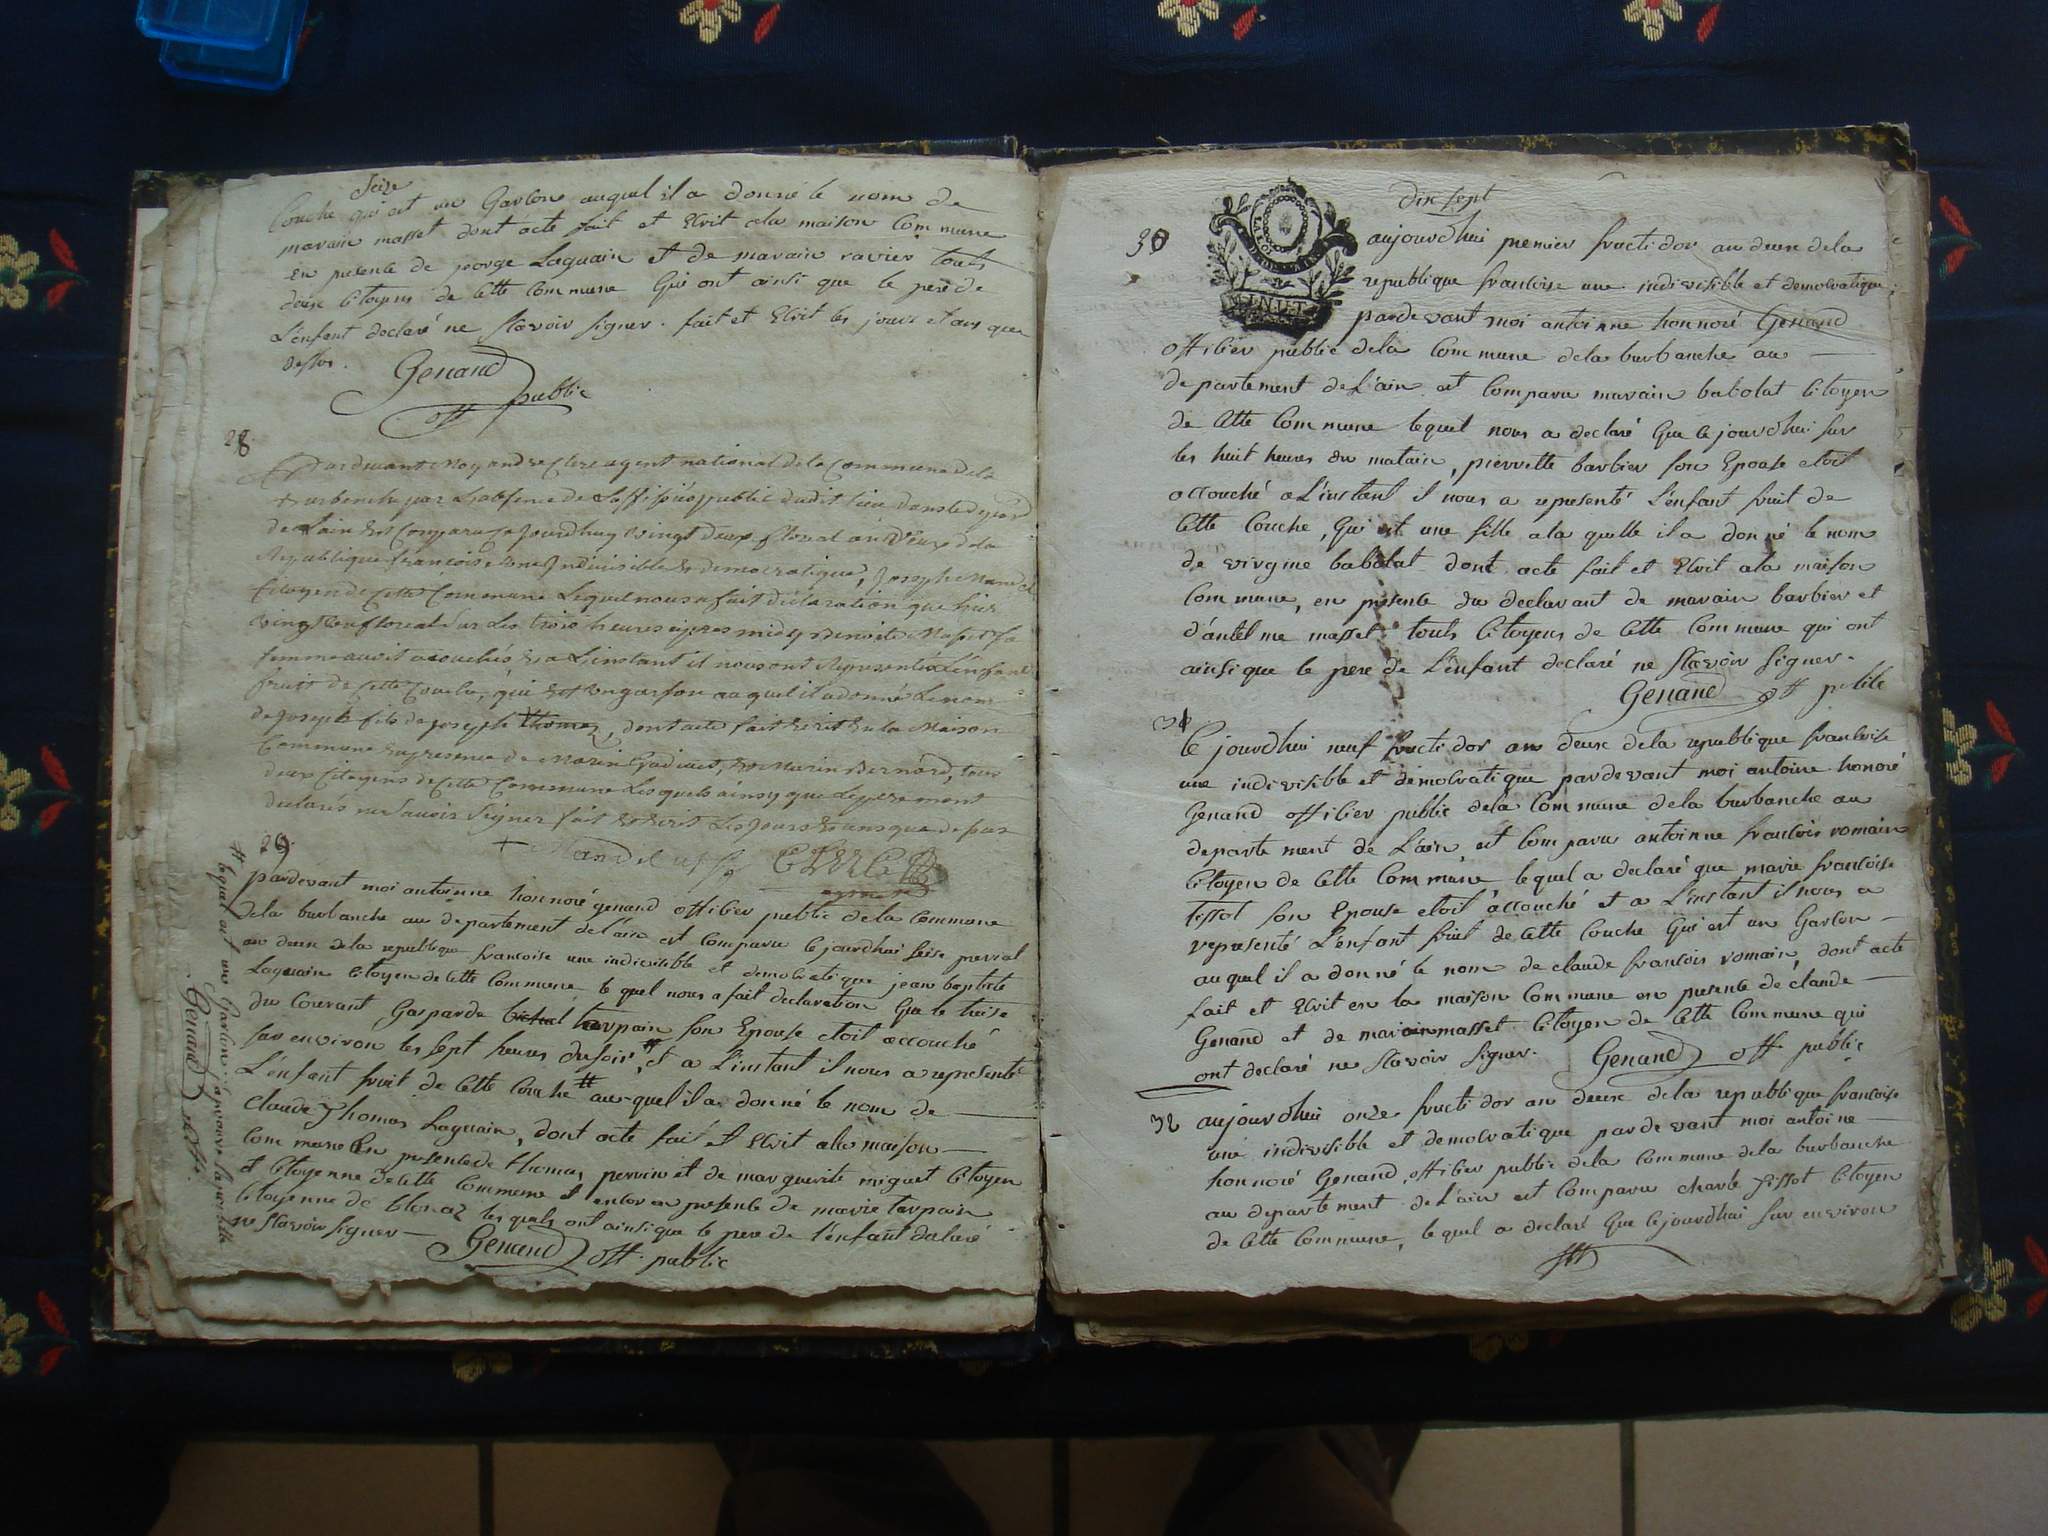 Seize
Couche qui est un Garcon auquel il a donné le nom de
marain masset dont acte fait et ecrit a la maison Commune
en presence de jeorge Laguain et de marain ravier touts
deux Citoyens de Cette Commune Qui ont ainsi que le pere de
L'enfant declaré ne scavoir signer. fait et ecrit les jours et ans que
dessus.
Genand
off public
28.
Pardevant Moy andre Clerc agent national de la Commune de la
burbanche par L'absence de L'officier public dudit lieu dans le depart
de Lain est Comparu Ce Jourdhuy vingt deux floreal an Deux de la
Republique françoise une Indivisible & democratique, Joseph Mandel
Citoyen de Cette Commune Lequel nous a fait declaration que hier
vingt un floreal sur Les trois heures apres midy Masset sa
femme avoit acouchés & a L'instant il nous ont Representés L'enfant
fruit de Cette Couche, qui est un garson auquel il a donné Le nom
de joseph fils de joseph thomas, dont acte fait & ecrit en la Maison
Commune en presence de Marin Gadinet, & Marin Bernard, tous
deux Citoyens de Cette Commune Lesquels ainsy que Le pere m'ont
declarés ne savoir Signer fait & ecrit Les jours & ans que de pus
+ Mandel CLERC
agent n
29.
pardevant moi antoinne honnoré genand officier public de la Commune
dela burbanche au departement de lain est Comparu Ce jourdhui seise prerial
an deux dela republique francoise une indivisible et democratique jean baptiste
Laguain Citoyen de Cette Commune le quel nous a fait declaration Que le treise
du Courant Gasparde tarpain son Epouse etoit accouché
sur environ les sept heures du soir, et a L'instant il nous a representé
L'enfant fruit de Cette Couche # au-quel il a donné le nom de
claude Thomas Laguain, dont acte fait et ecrit alla maison
Commune En presence de thomas perrin et de marguerite miguet Citoyen
et Citoyenne de Cette Commune et encor en presence de marie tarpain
Citoyenne de blonaz les quels ont ainsi que le pere de l'enfant declaré
ne scavoir signer Genand off. public
# lequel est un Garcon japrouve la
Genand off.
dix sept
MINUT
30 aujourdhui premier fructidor an deux dela
republique francoise une indivisible et democratique
pardevant moi antoinne honnoré Genand
officier public dela Commune dela burbanche au
departement de L'ain est Comparu marain babolat Citoyen
de Cette Commune lequel nous a declaré Que Cejourdhui sur
les huit heures du matain, pierrette barbier son Epouse etoit
accouché a L'instant il nous a representé L'enfant fruit de
Cette Couche, Qui est une fille a la quelle il a donné le nom
de virgine babolat dont acte fait et ecrit ala maison
Commune, en presence du declarant de marain barbier et
d'antelme masset touts Citoyens de Cette Commune qui ont
ainsi que le pere de L'enfant declaré ne scavoir signer.
Genand off publc
31
Ce jourdhui neuf fructidor an deux dela republique francoise
une indivisible et democratique pardevant moi antoine honoré
Genand officier public dela Commune dela burbanche au
departement de L'ain, est Comparu antoinne francois romain
Citoyen de Cette Commune, lequel a declaré que marie francoise
Tissot son Epouse etoit accouché et a L'instant il nous a
representé L'enfant fruit de Cette Couche Qui est un Garcon
auquel il a donné le nom de claude francois romain, dont acte
fait et ecrit en la maison Commune en presence de claude
Genand et de marain masset Citoyen de Cette Commune qui
ont declaré ne scavoir signer. Genand off. public
32 aujourdhui onze fructidor an deux dela republique francoise
une indivisible et democratique pardevant moi antoine
honnoré Genand officier public dela Commune dela burbanche
au departement de L'ain est Comparu charle Tissot Citoyen
de Cette Commune, lequel a declaré Que Cejourdhui sur environ